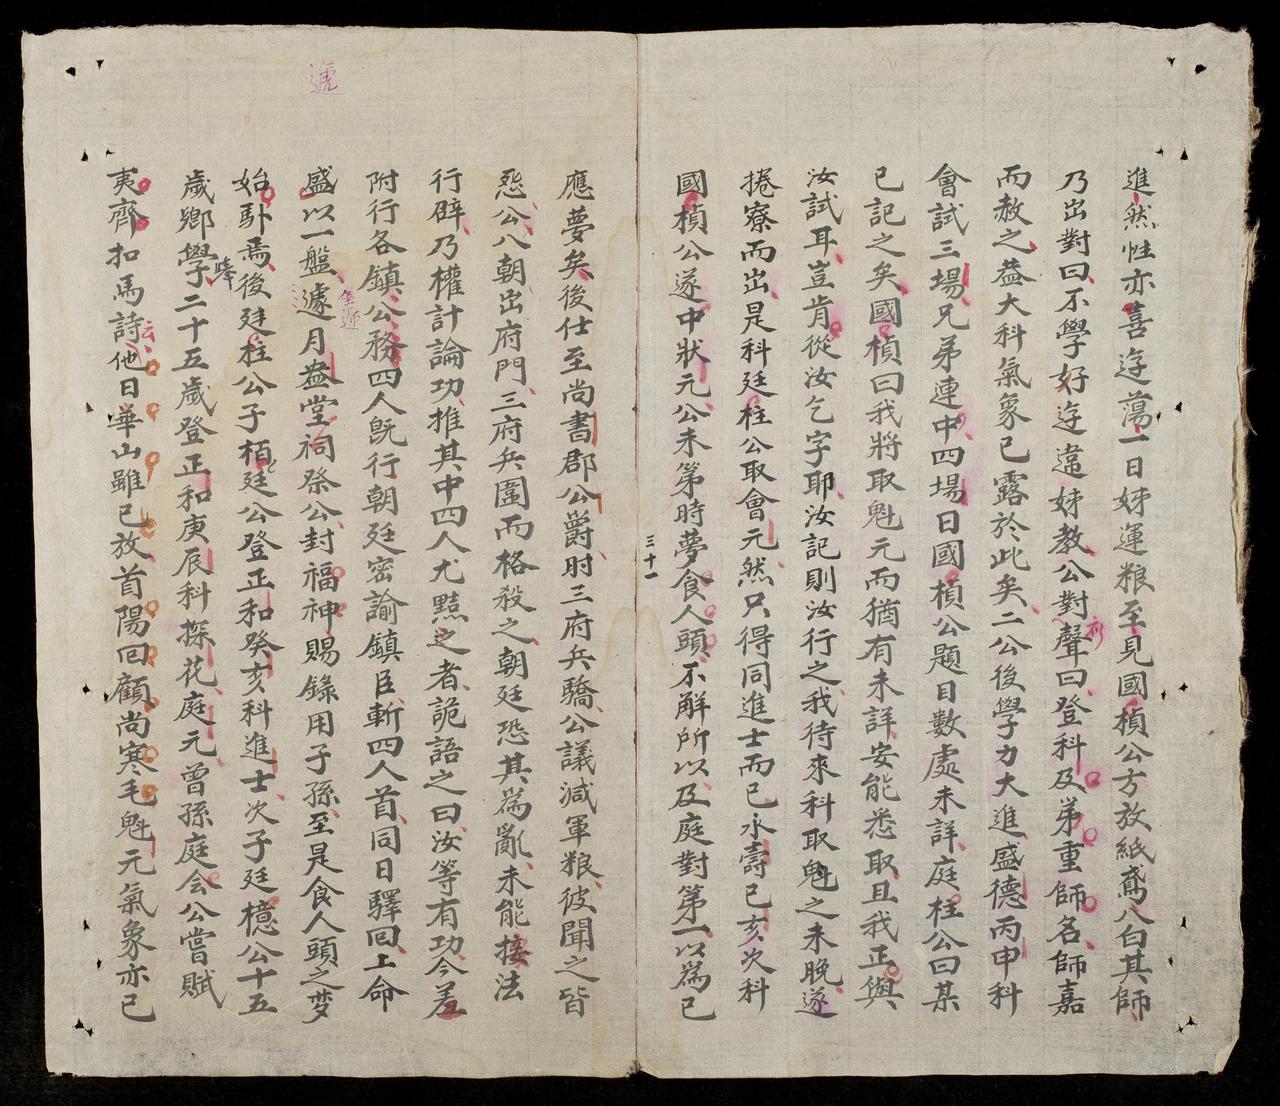 進然性亦喜逰蕩一日姊運粮至見國楨公方放紙鳶入白其師
乃出對曰不學好逰違姊教公對聲曰登科及弟重師名師嘉
而赦之葢大科氣象已露於此矣二公後學力大進盛德丙申科
會試三場兄弟連中四場日國楨公題目數處未詳庭柱公曰某
已記之矣國楨曰我將取魁元而猶有未詳安能悉取且我正與
汝試耳豈肯從汝乞字耶汝記則汝行之我待來科取魁之未晚遂
捲寮而出是科廷柱公取會元然只得同進士而已永壽己亥次科
國楨公遂中狀元公未第時夢食人頭不解所以及庭對第一以為已
三十一
應夢矣後仕至尚書郡公爵時三府兵驕公議減軍粮彼聞之皆
怨公入朝出府門三府兵圍而格殺之朝廷恐其為亂未能接法
行辟乃權計論功推其中四人尤黠之者詭語之曰汝等有功今差
附行各鎮公務四人旣行朝廷密諭鎮臣斬四人首同日驛回上命
盛以一盤遽月盎堂祠祭公封福神賜錄用子孫至是食人頭之梦
始馱焉後廷柱公子栢廷公登正和癸亥科進士次子廷檍公十五
歲鄉學二十五歲登正和庚辰科探花庭元曾孫庭会公嘗賦
夷齊扣馬詩他日華山雖已放首陽回顧尚寒毛魁元氣象亦已
遞
云